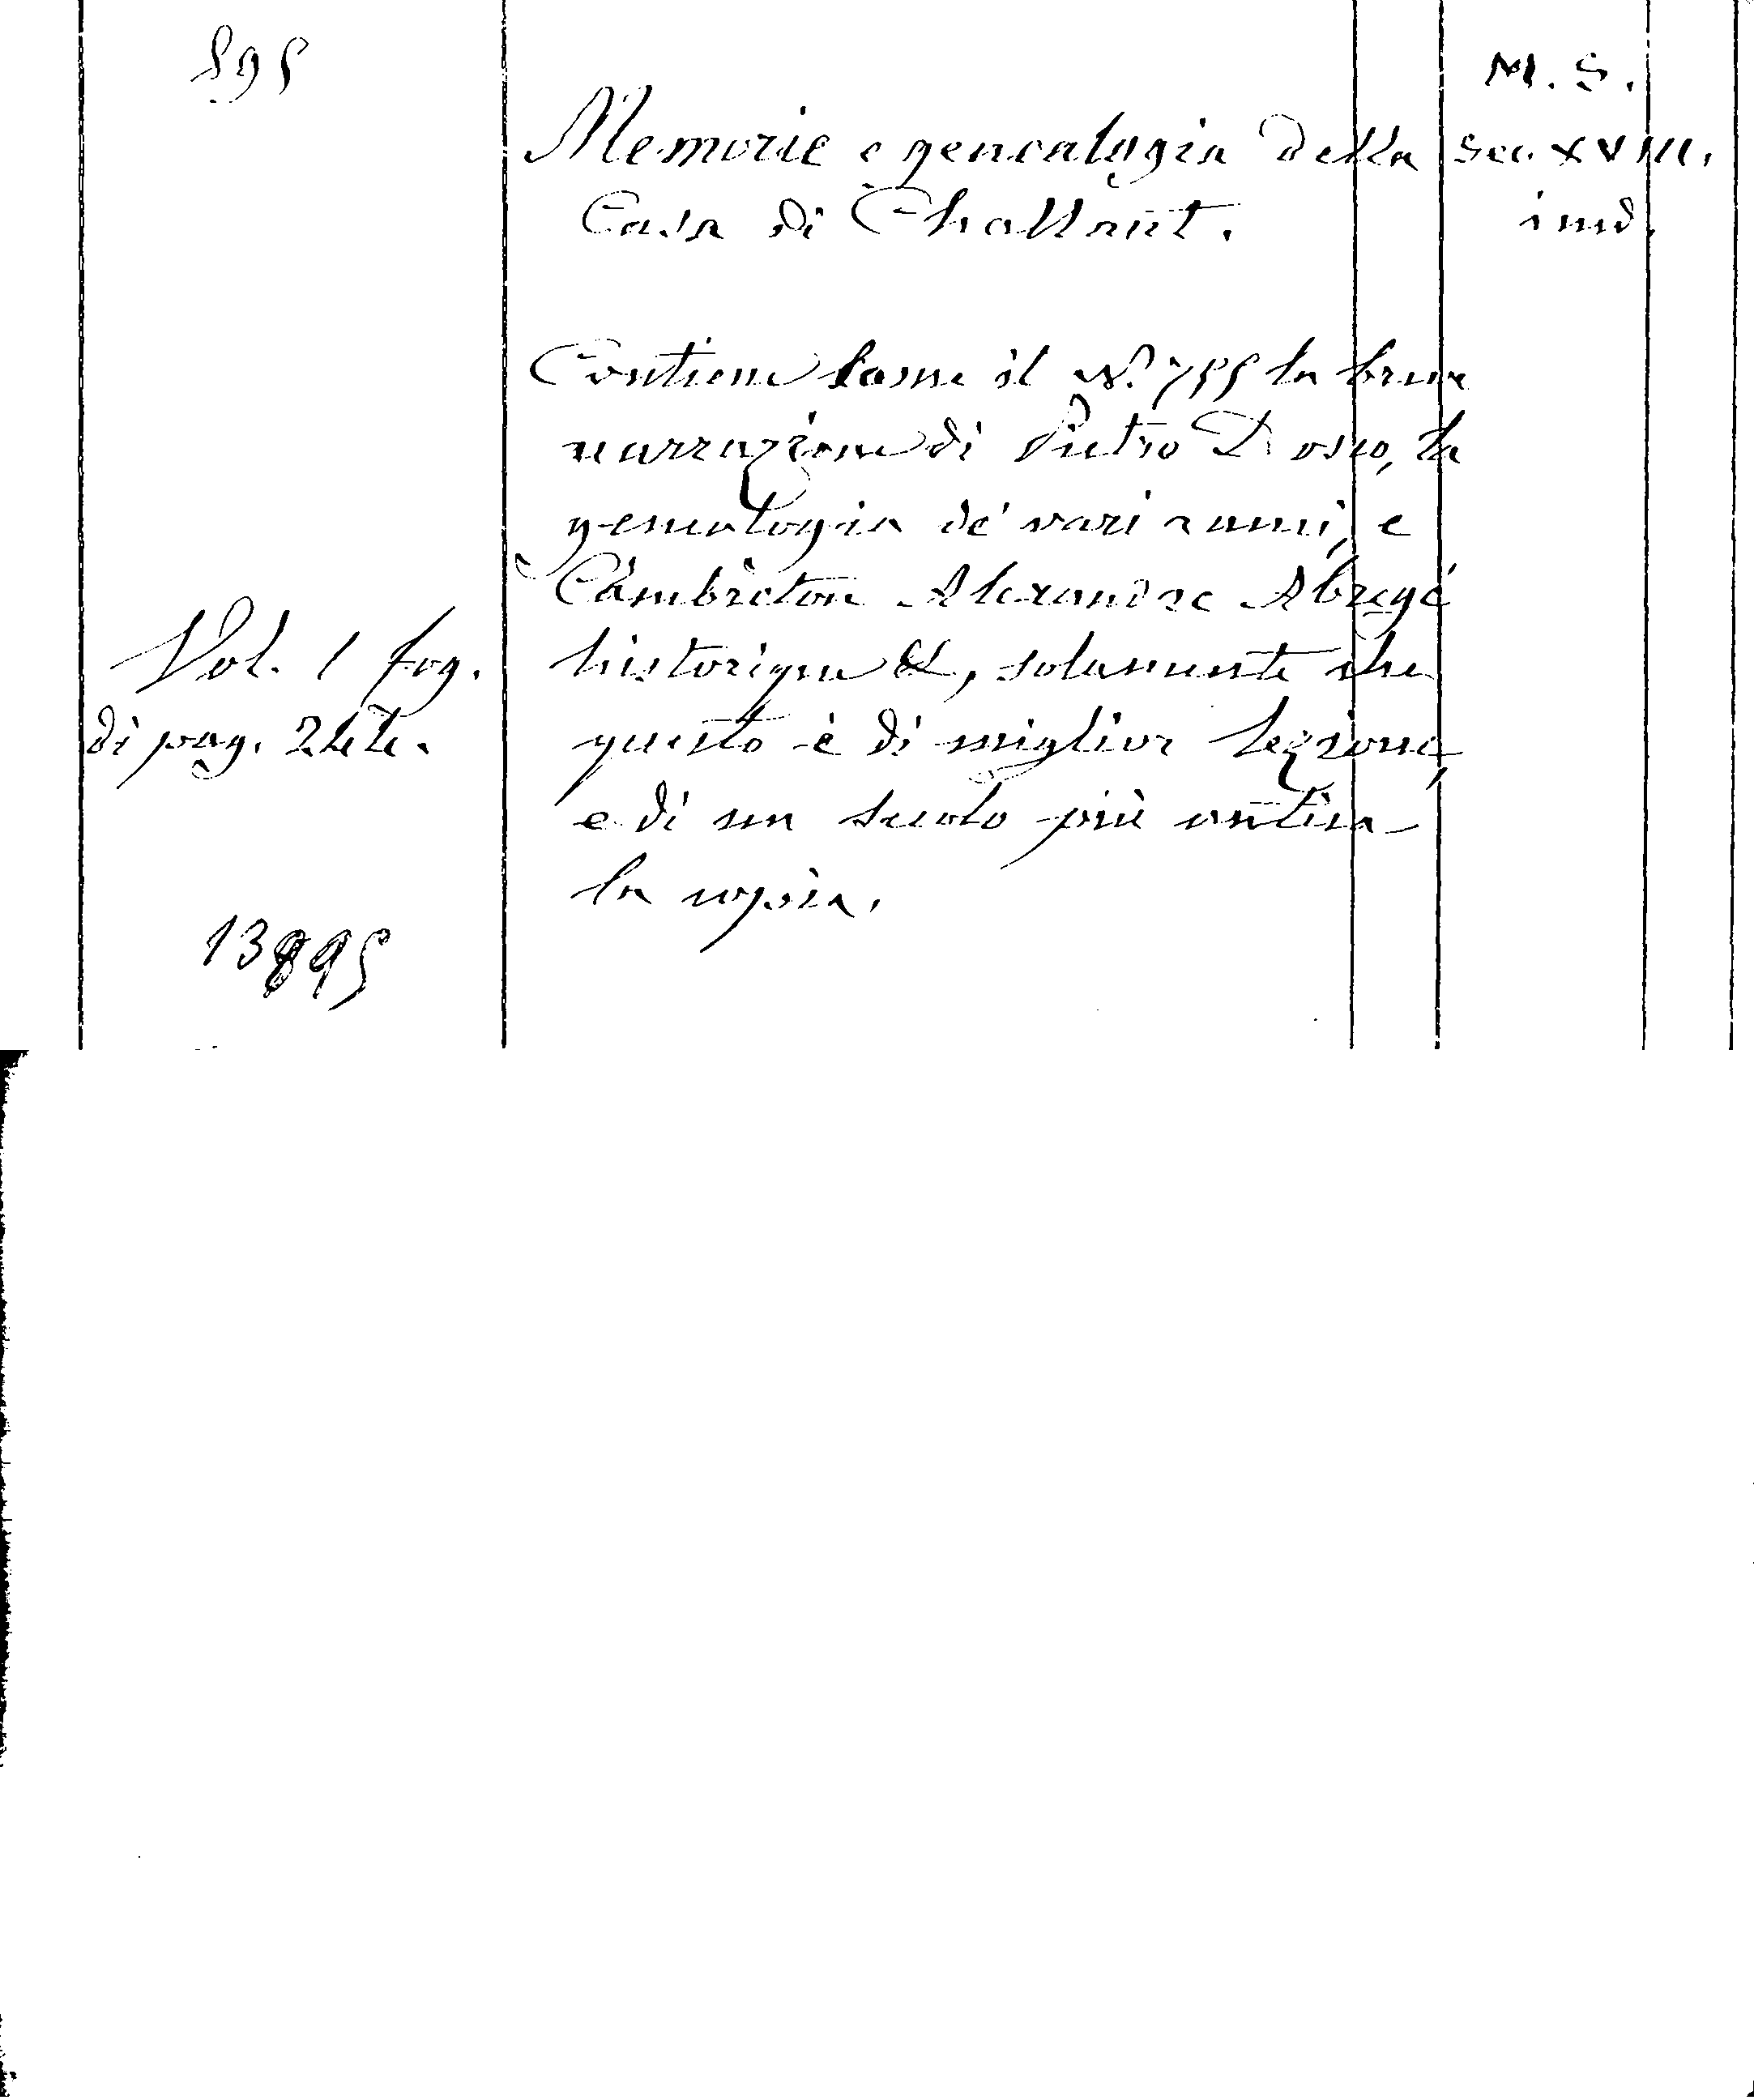 895
M. S.
Memorie e genealogia della
sec. XVIII.
Casa di Challant.
ined.
Contiene come il N.° 755 la breve
narrazione di Pietro Dosio, la
genealogia de' vari rami, e
Vol. 1 fog.
di pag. 244.
Cambreton Alexandre Abregé
historique &, solamente che
questo è di miglior lezione,
e di un secolo più antica
la copia.
13895